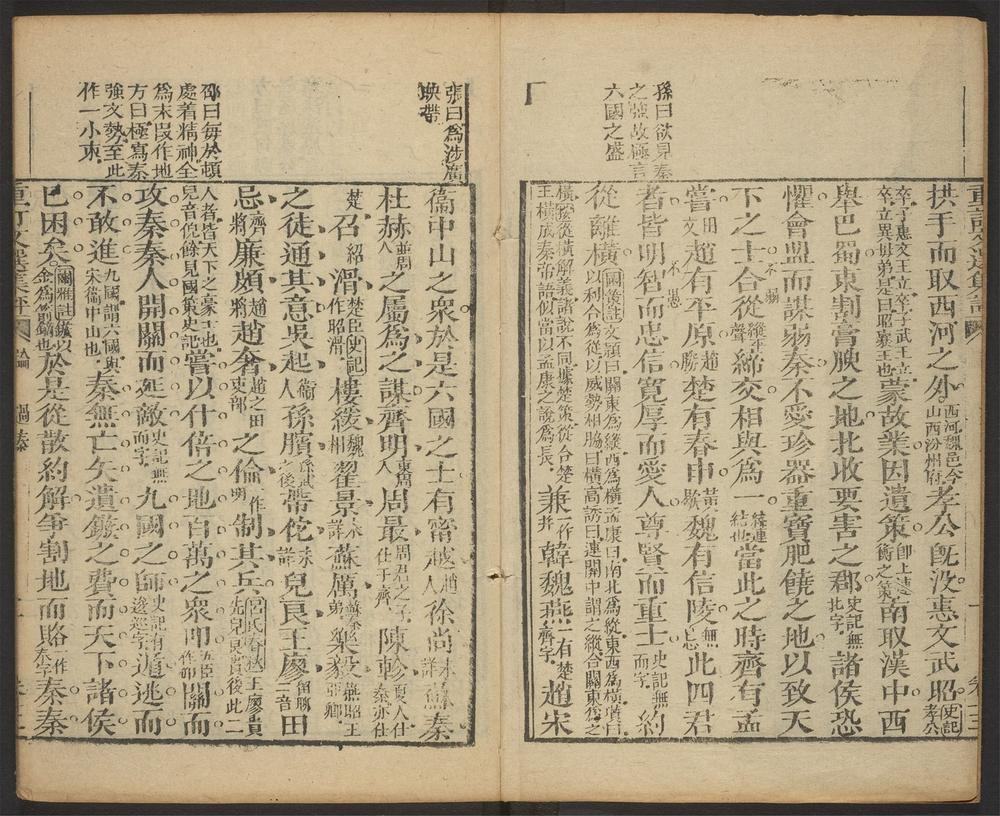 孫曰欲見秦
之強故極言
六國之盛
拱手而取西河之外西河魏邑今山西汾州府孝公既沒惠文武昭史記孝公
卒子惠文王立卒子武王立卒立異母弟是曰昭襄王也蒙故業因遺策即上述衛之策南取漢中西
舉巴蜀東割膏腴之地北收要害之郡史記無北字諸侯恐
懼會盟而謀弱秦不愛珍器重寶肥饒之地以致天
下之士合從縱平聲締交相與為一締連結也當此之時齊有孟
嘗田文趙有平原趙勝楚有春申黃歇魏有信陵無忌此四君
者皆明智而忠信寬厚而愛人尊賢而重士史記無而字約
從離橫國策註文穎曰關東為縱西為橫孟康曰南北為縱東西為橫瓚曰以利合為從以威勢相脅曰橫高誘曰連關中謂之縱合關東為之
橫縱從橫解義諸說不同據楚策從合楚王橫成秦帝語似當以孟康之說為長兼一作并韓魏燕一有齊字楚趙宋
張曰為涉廣
映帶
孫曰每於頓
處着精神全
為末段作地
方曰極寫秦
強文勢至此
作一小束
衞中山之衆於是六國之士有甯越趙人徐尚未詳蘇秦
杜赫並周人之屬為之謀齊明東周人周最周君之子仕于齊陳軫夏人仕秦亦仕
楚召紹滑楚臣史記作昭滑樓緩魏相翟景未詳蘇厲蘇秦弟樂毅燕昭王亞卿
之徒通其意吳起衞人孫臏孫武之後帶佗未詳兒良王廖留聊二音田
忌齊將廉頗趙將趙奢趙之田部吏之倫一作朋制其兵呂氏春秋王廖貴先兒良貴後此二
人者皆天下之豪士也兒音倪餘見國策史記嘗以什倍之地百萬之衆叩五臣作仰關而
攻秦秦人開關而延敵史記無而字九國之師史記有逡巡字遁逃而
不敢進九國謂六國與宋衞中山也秦無亡矢遺鏃之費而天下諸侯
已困矣爾雅註鏃以金為箭鏑也於是從散約解爭割地而賂一作奉字秦秦